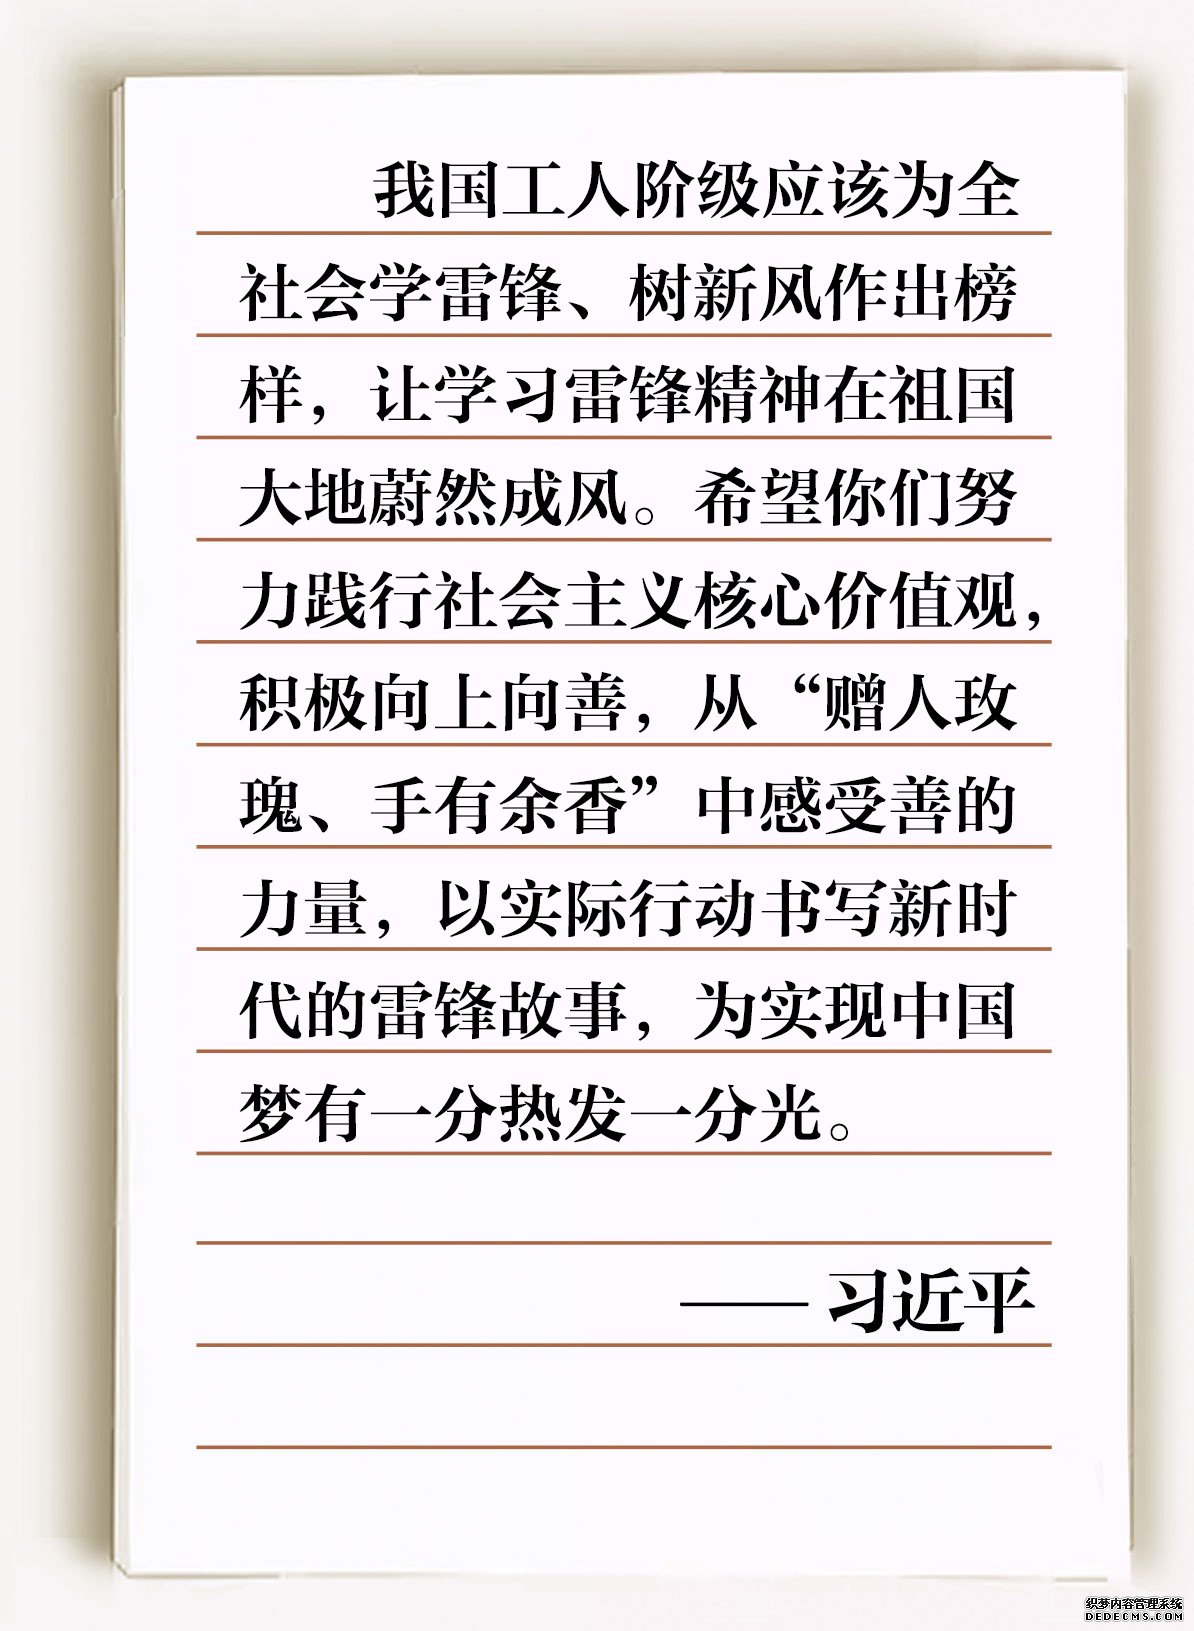 我国工人阶级应该为全
社会学雷锋、树新风作出榜
样，让学习雷锋精神在祖国
大地蔚然成风。希望你们努
力践行社会主义核心价值观，
积极向上向善，从“赠人玫
瑰、手有余香”中感受善的
力量，以实际行动书写新时
代的雷锋故事，为实现中国
梦有一分热发一分光。
—— 习近平
织梦内容管理系统
DEDECMS.COM